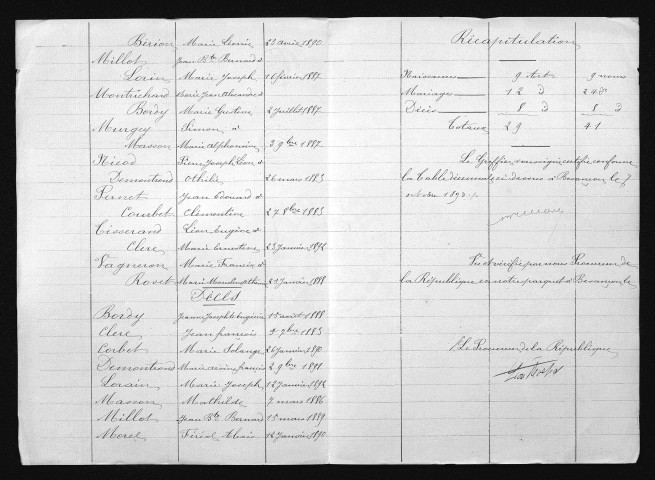 Bérion Marie Léonie 23 avril 1890
Millot Jean Bte Bernard &
Lorin Marie Joseph 16 février 1887
Montrichard
Bordy Marie 2 juillet 1887
Murgey Simon &
Masson Marie Alphonsine 3 9bre 1887
Nicod Pierre Joseph Léon &
Demontrond Othilie 26 mars 1883
Pernet Jean Edouard &
Courbet Clémentine 27 8bre 1883
Tisserand Léon Eugène &
Clerc Marie Ernestine 23 janvier
Vagneron Marie Francis &
Rovet Marie 21 janvier 1888
Décès
Bordy Jeanne Josephte Eugénie 15 août 1888
Clerc Jean françois 9 7bre 1883
Corbet Marie Solange 26 janvier 1890
Demontrond 2 9bre 1891
Lorain Marie Joseph 12 janvier
Masson Mathilde 7 mars 1886
Millot Jean Bte Bernard 15 mars 1889
Morel Féréol Alexis 18 janvier 1890
Récapitulation
Naissances 9 actes 9 noms
Mariages 12 d 24 d
Décès 8 d 8 d
Totaux 29 41
Le Greffier soussigné certifie conforme
la Table décennale ci-dessus à Besançon le 7
Vu et vérifié par nous Procureur de
la République en notre parquet à Besançon le
Le Procureur de la République